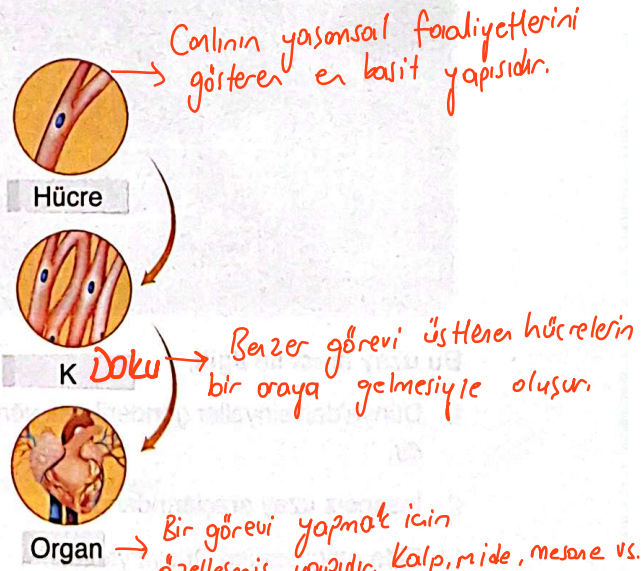 Canlının yaşamsal faaliyetlerini
gösteren en basit yapısıdır.
Hücre
K Doku → Benzer görevi üstlenen hücrelerin
bir araya gelmesiyle oluşur.
Organ → Bir görevi yapmak için
özelleşmiş yapıdır. Kalp, mide, mesane vs.